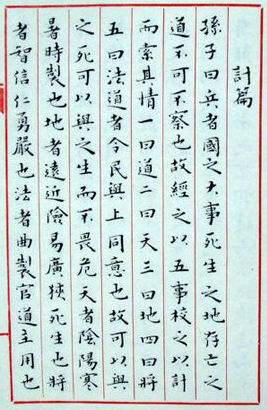 計篇
孫子曰兵者國之大事死生之地存亡之
道不可不察也故經之以五事校之以計
而索其情一曰道二曰天三曰地四曰將
五曰法道者令民與上同意也故可以與
之死可以與之生而不畏危天者陰陽寒
暑時製也地者遠近險易廣狹死生也將
者智信仁勇嚴也法者曲製官道主用也